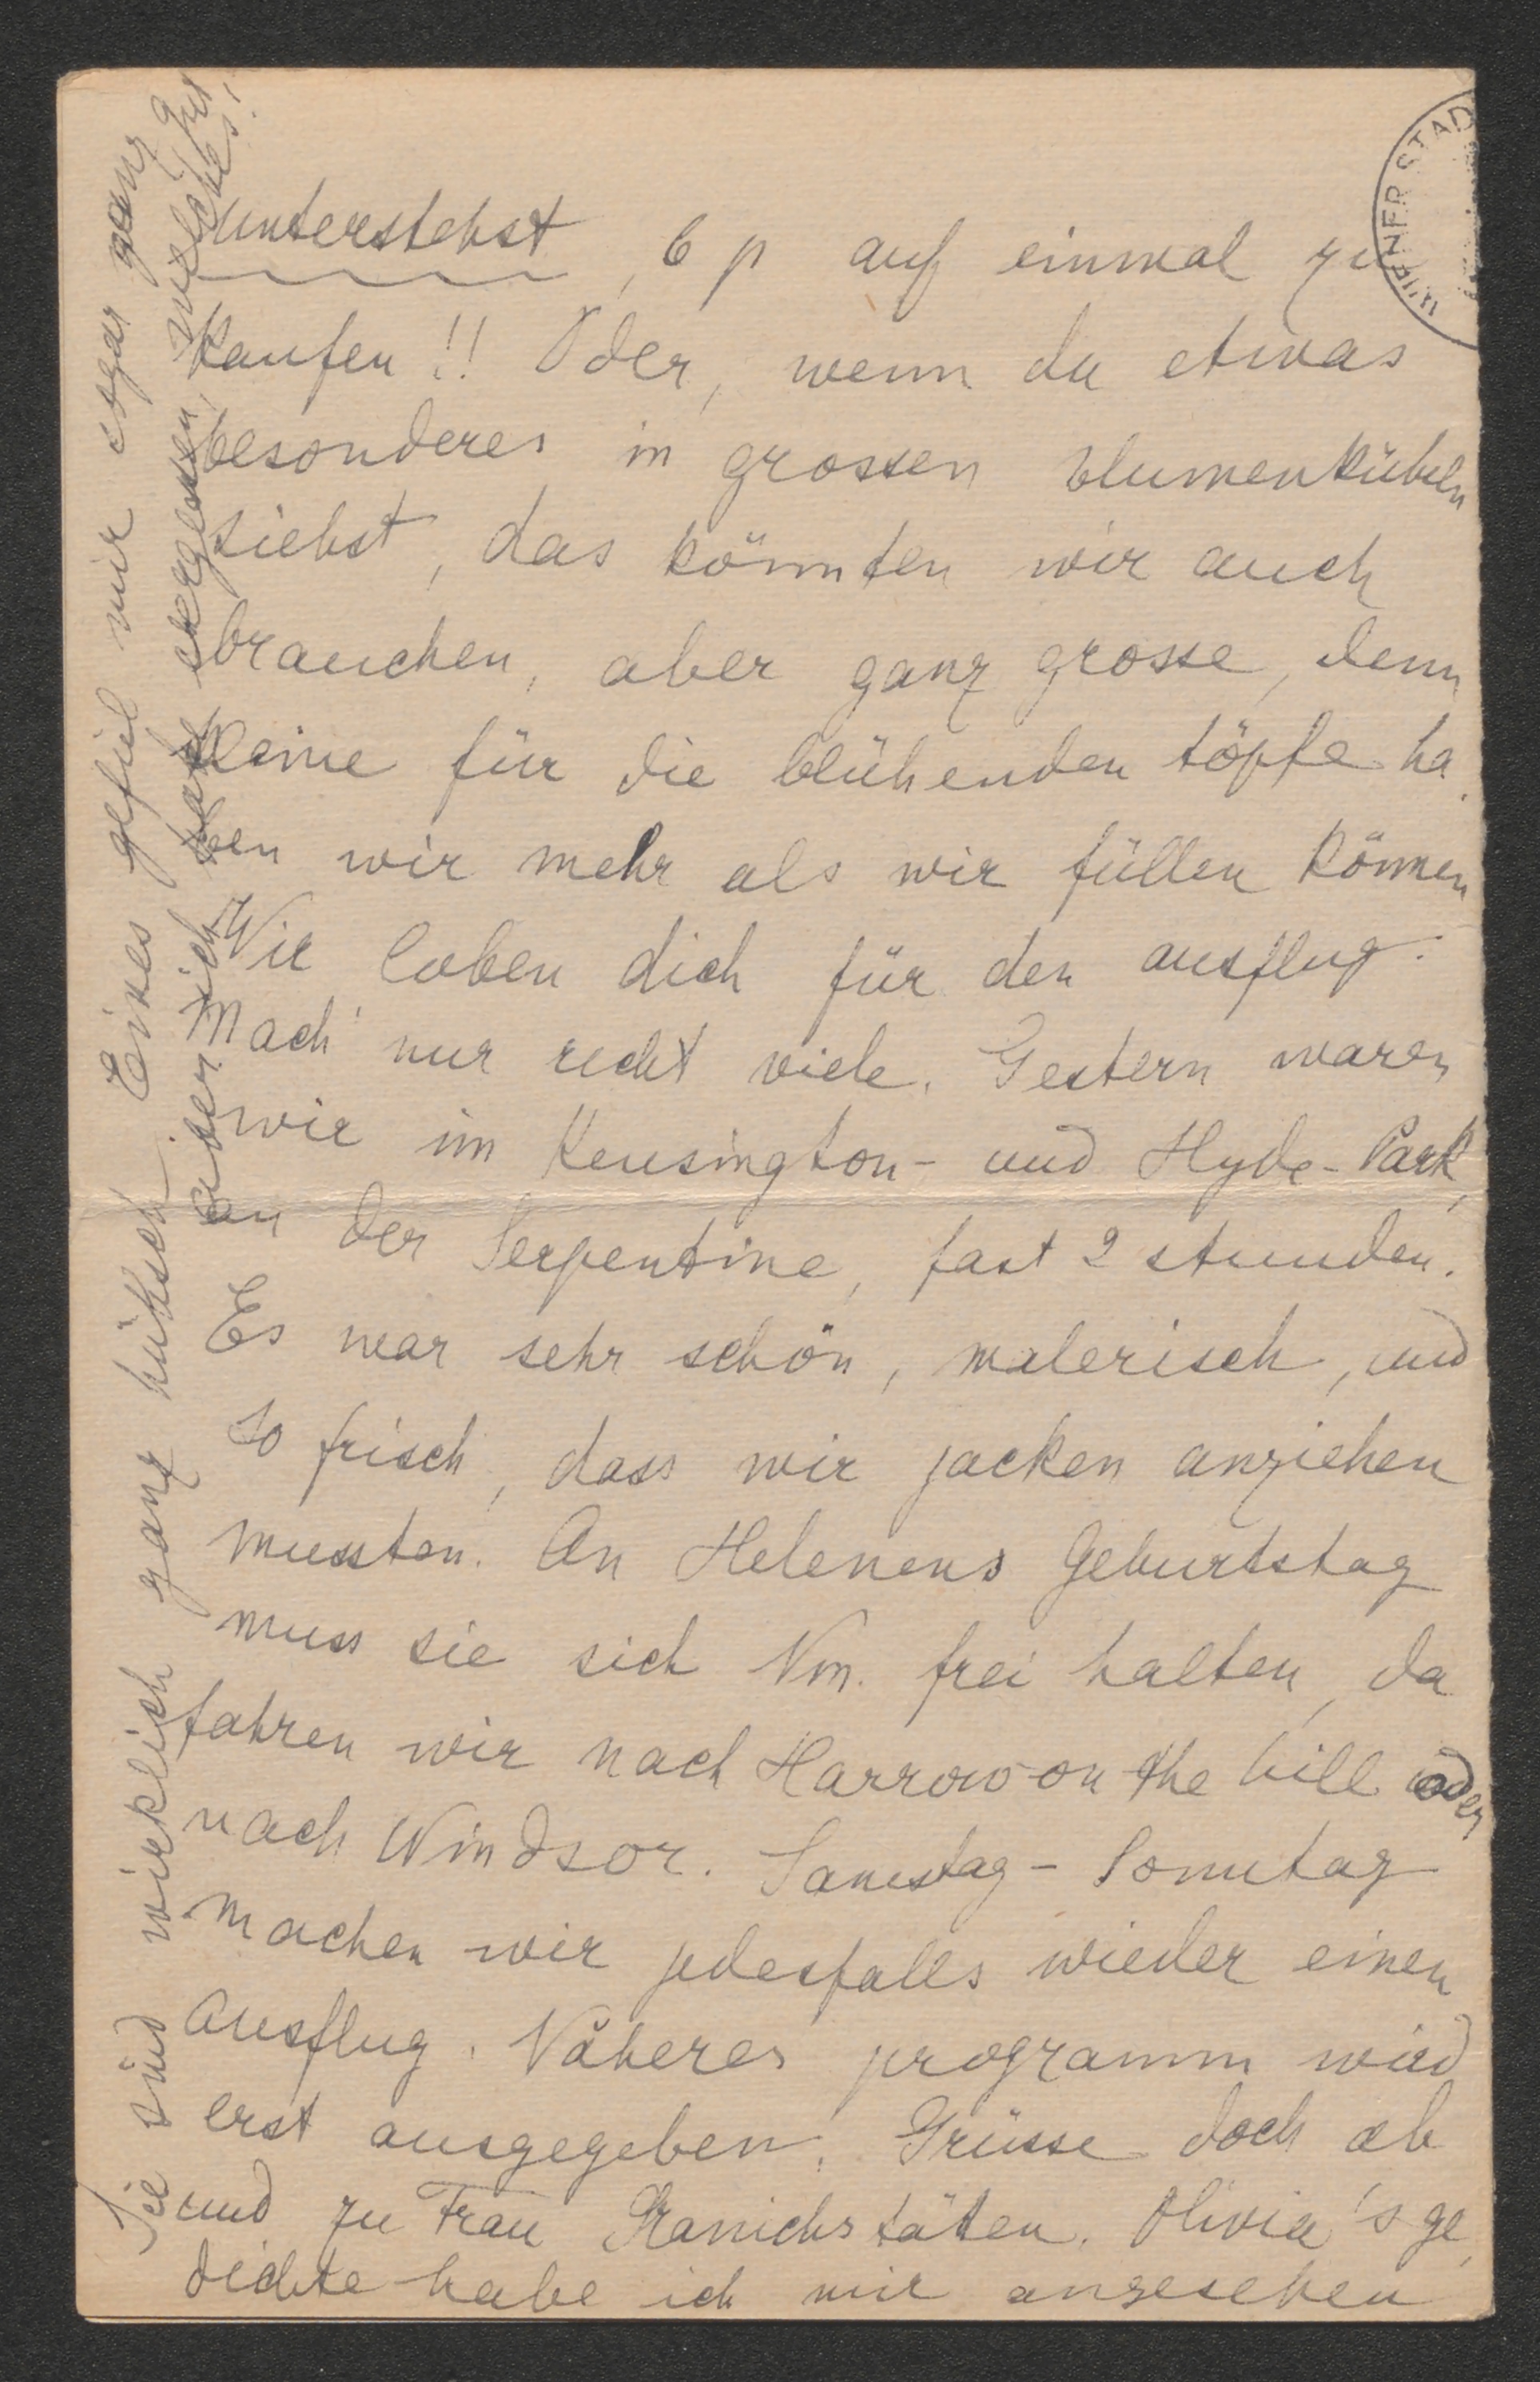 unterstehst, 6 p auf einmal zu
kaufen!! Oder, wenn du etwas
besonderes in grossen blumenkübeln
siehst, das könnten wir auch
brauchen, aber ganz grosse, denn
kleine für die blühenden töpfe ha
ben wir mehr als wir füllen können
Wir loben dich für den ausflug.
Mach' nur recht viele. Gestern waren
wir im Kensington- und Hyde-Park,
an der Serpentine, fast 2 stunden.
Es war sehr schön, malerisch, und
so frisch, dass wir jacken anziehen
mussten. An Helenens Geburtstag
muss sie sich Nm. frei halten, da
fahren wir nach Harrow-on the hill oder
nach Windsor. Samstag - Sonntag
machen wir jedesfalls wieder einen
Ausflug. Näheres programm wird
erst ausgegeben. Grüsse doch ab
und zu Frau Kranichstäten. Olivia's ge
dichte habe ich mir angesehen
Sie sind wirklich ganz hübsch. Eines gefiel mir sogar ganz gut
aber ich habe vergessen, welches!
WIENER STAD